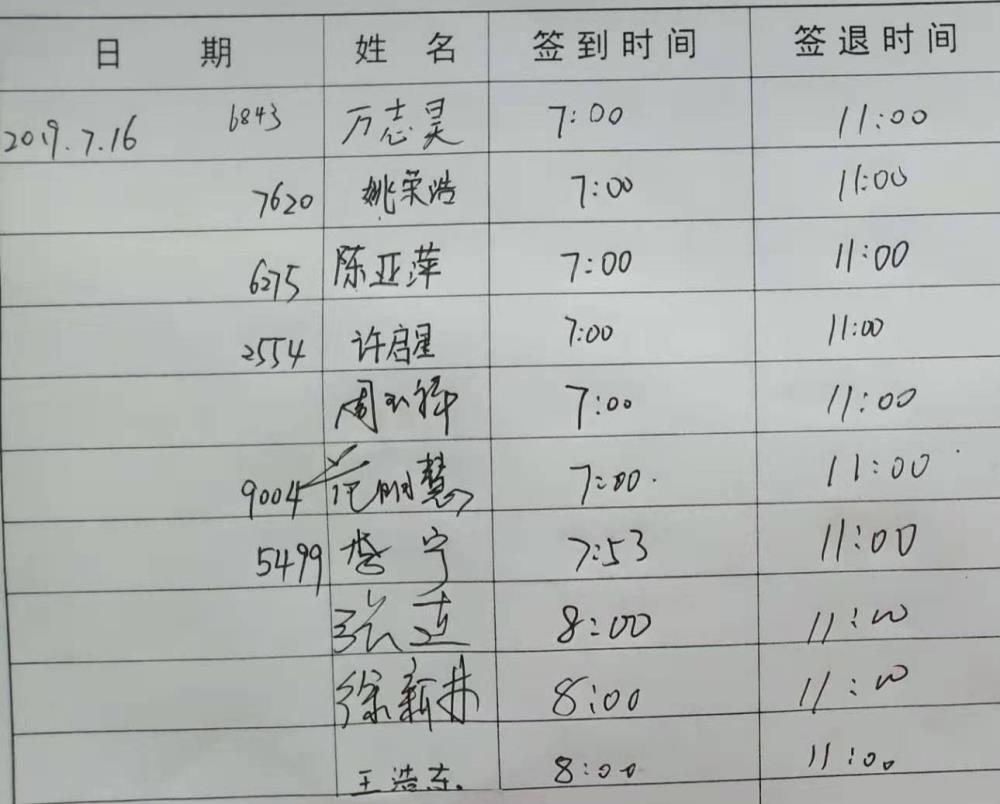 日 期 姓 名 签到时间 签退时间
2019.7.16 6843 万志昊 7:00 11:00
7620 姚荣浩 7:00 11:00
6275 陈亚萍 7:00 11:00
2554 许启星 7:00 11:00
周 7:00 11:00
9004 范明慧 7:00 11:00
5499 宁 7:53 11:00
张 8:00 11:00
徐新 8:00 11:00
王浩东 8:00 11:00